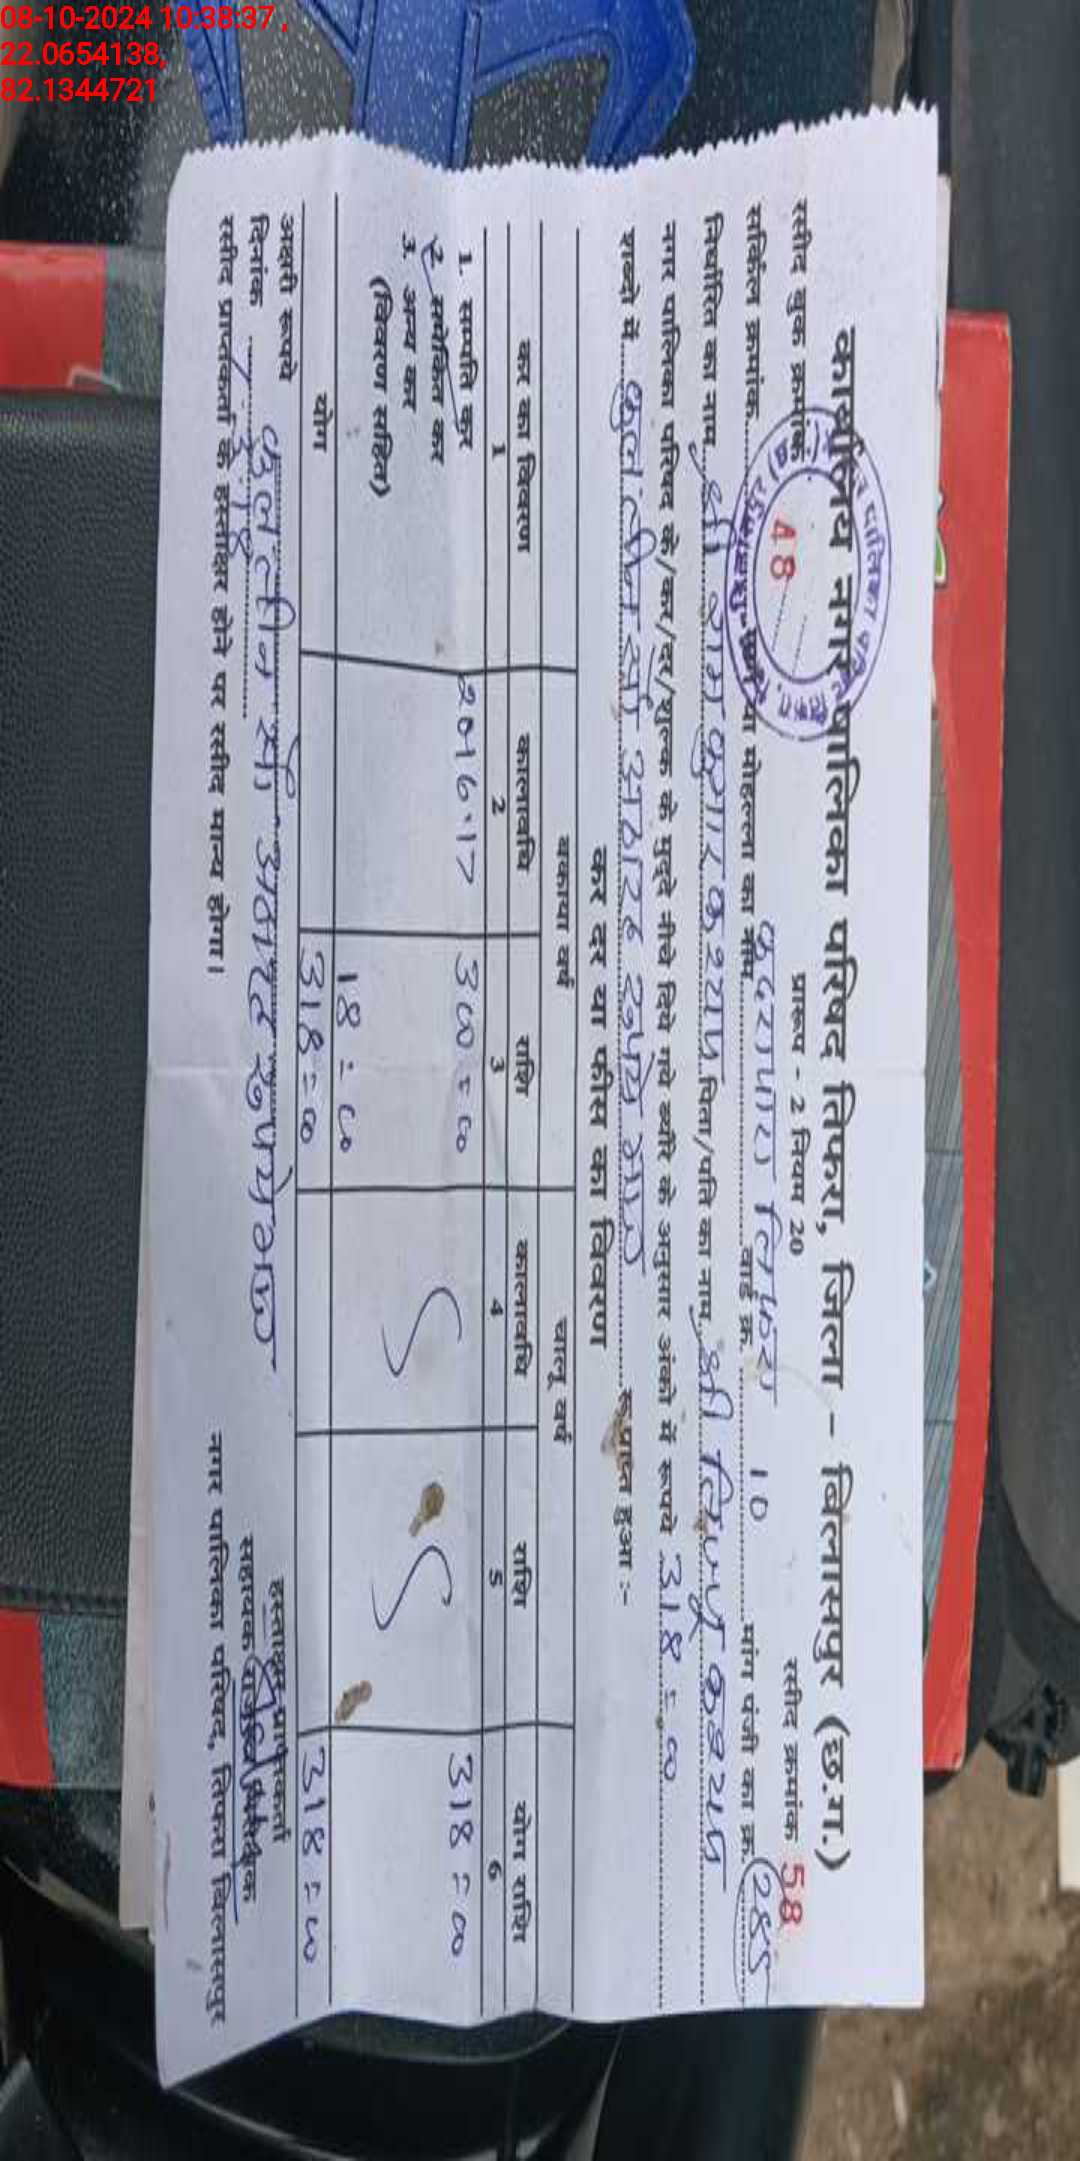 08-10-2024 10:38:37 ,
22.0654138,
82.1344721
कार्यालय नगर पालिका परिषद तिफरा, जिला - बिलासपुर (छ.ग.)
प्रारूप - 2 नियम 20
रसीद बुक क्रमांक 48 रसीद क्रमांक 58
सर्किल क्रमांक मोहल्ला का नाम तिफरा वार्ड क्र. 10 मांग पंजी का क्र. 285
निर्धारिति का नाम श्री राम कुमार कश्यप पिता/पति का नाम श्री कश्यप
नगर पालिका परिषद के/कर/दर/शुल्क के मुद्दे नीचे दिये गये ब्यौरे के अनुसार अंकों में रूपये 318 = 00
शब्दों में कुल तीन सौ अठारह रूपये मात्र रू. प्राप्त हुआ :-
कर दर या फीस का विवरण
बकाया वर्ष चालू वर्ष
कर का विवरण कालावधि राशि कालावधि राशि योग राशि
1 2 3 4 5 6
1. सम्पति कर 2016.17 300 = 00 318 = 00
2. समेकित कर
3. अन्य कर
(विवरण सहित)
18 = 00
योग 318 = 00 318 = 00
अक्षरी रूपये कुल तीन सौ अठारह रूपये मात्र
दिनांक
रसीद प्राप्तकर्ता के हस्ताक्षर होने पर रसीद मान्य होगा।
हस्ताक्षर प्राप्तकर्ता
सहायक राजस्व निरीक्षक
नगर पालिका परिषद, तिफरा बिलासपुर